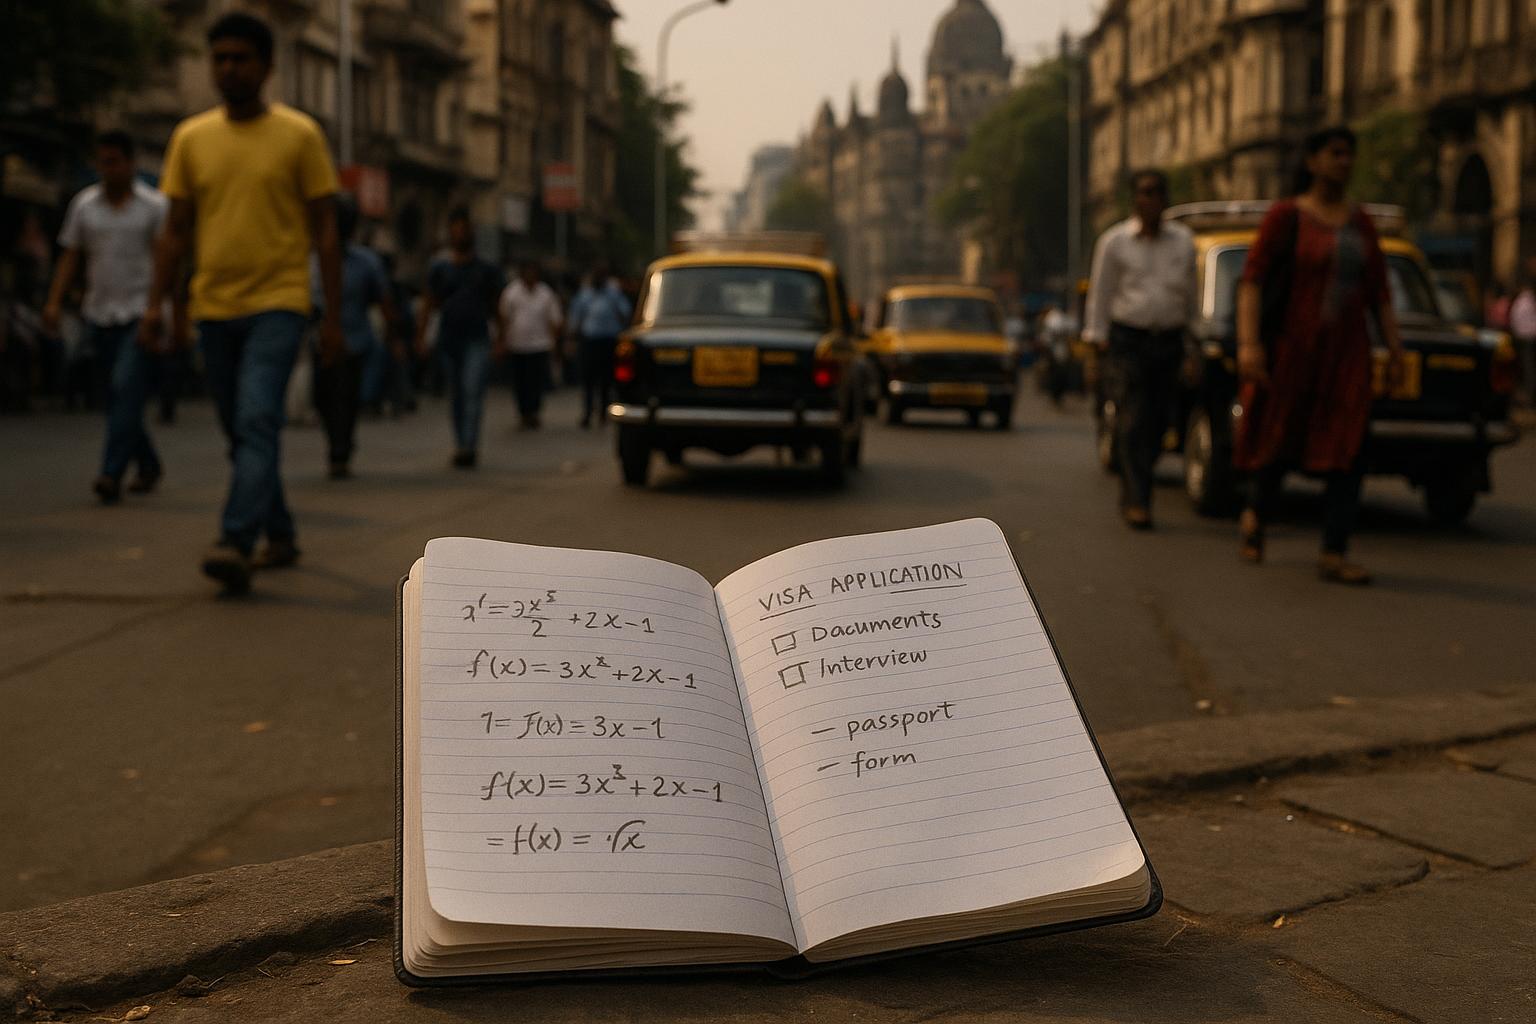 x′ = 3x⁵/2 + 2x − 1
f(x) = 3x² + 2x − 1
1 = f(x) = 3x − 1
f(x) = 3x³ + 2x − 1
= f(x) = √x
VISA APPLICATION
☐ Dacuments
☐ Interview
– passport
– form